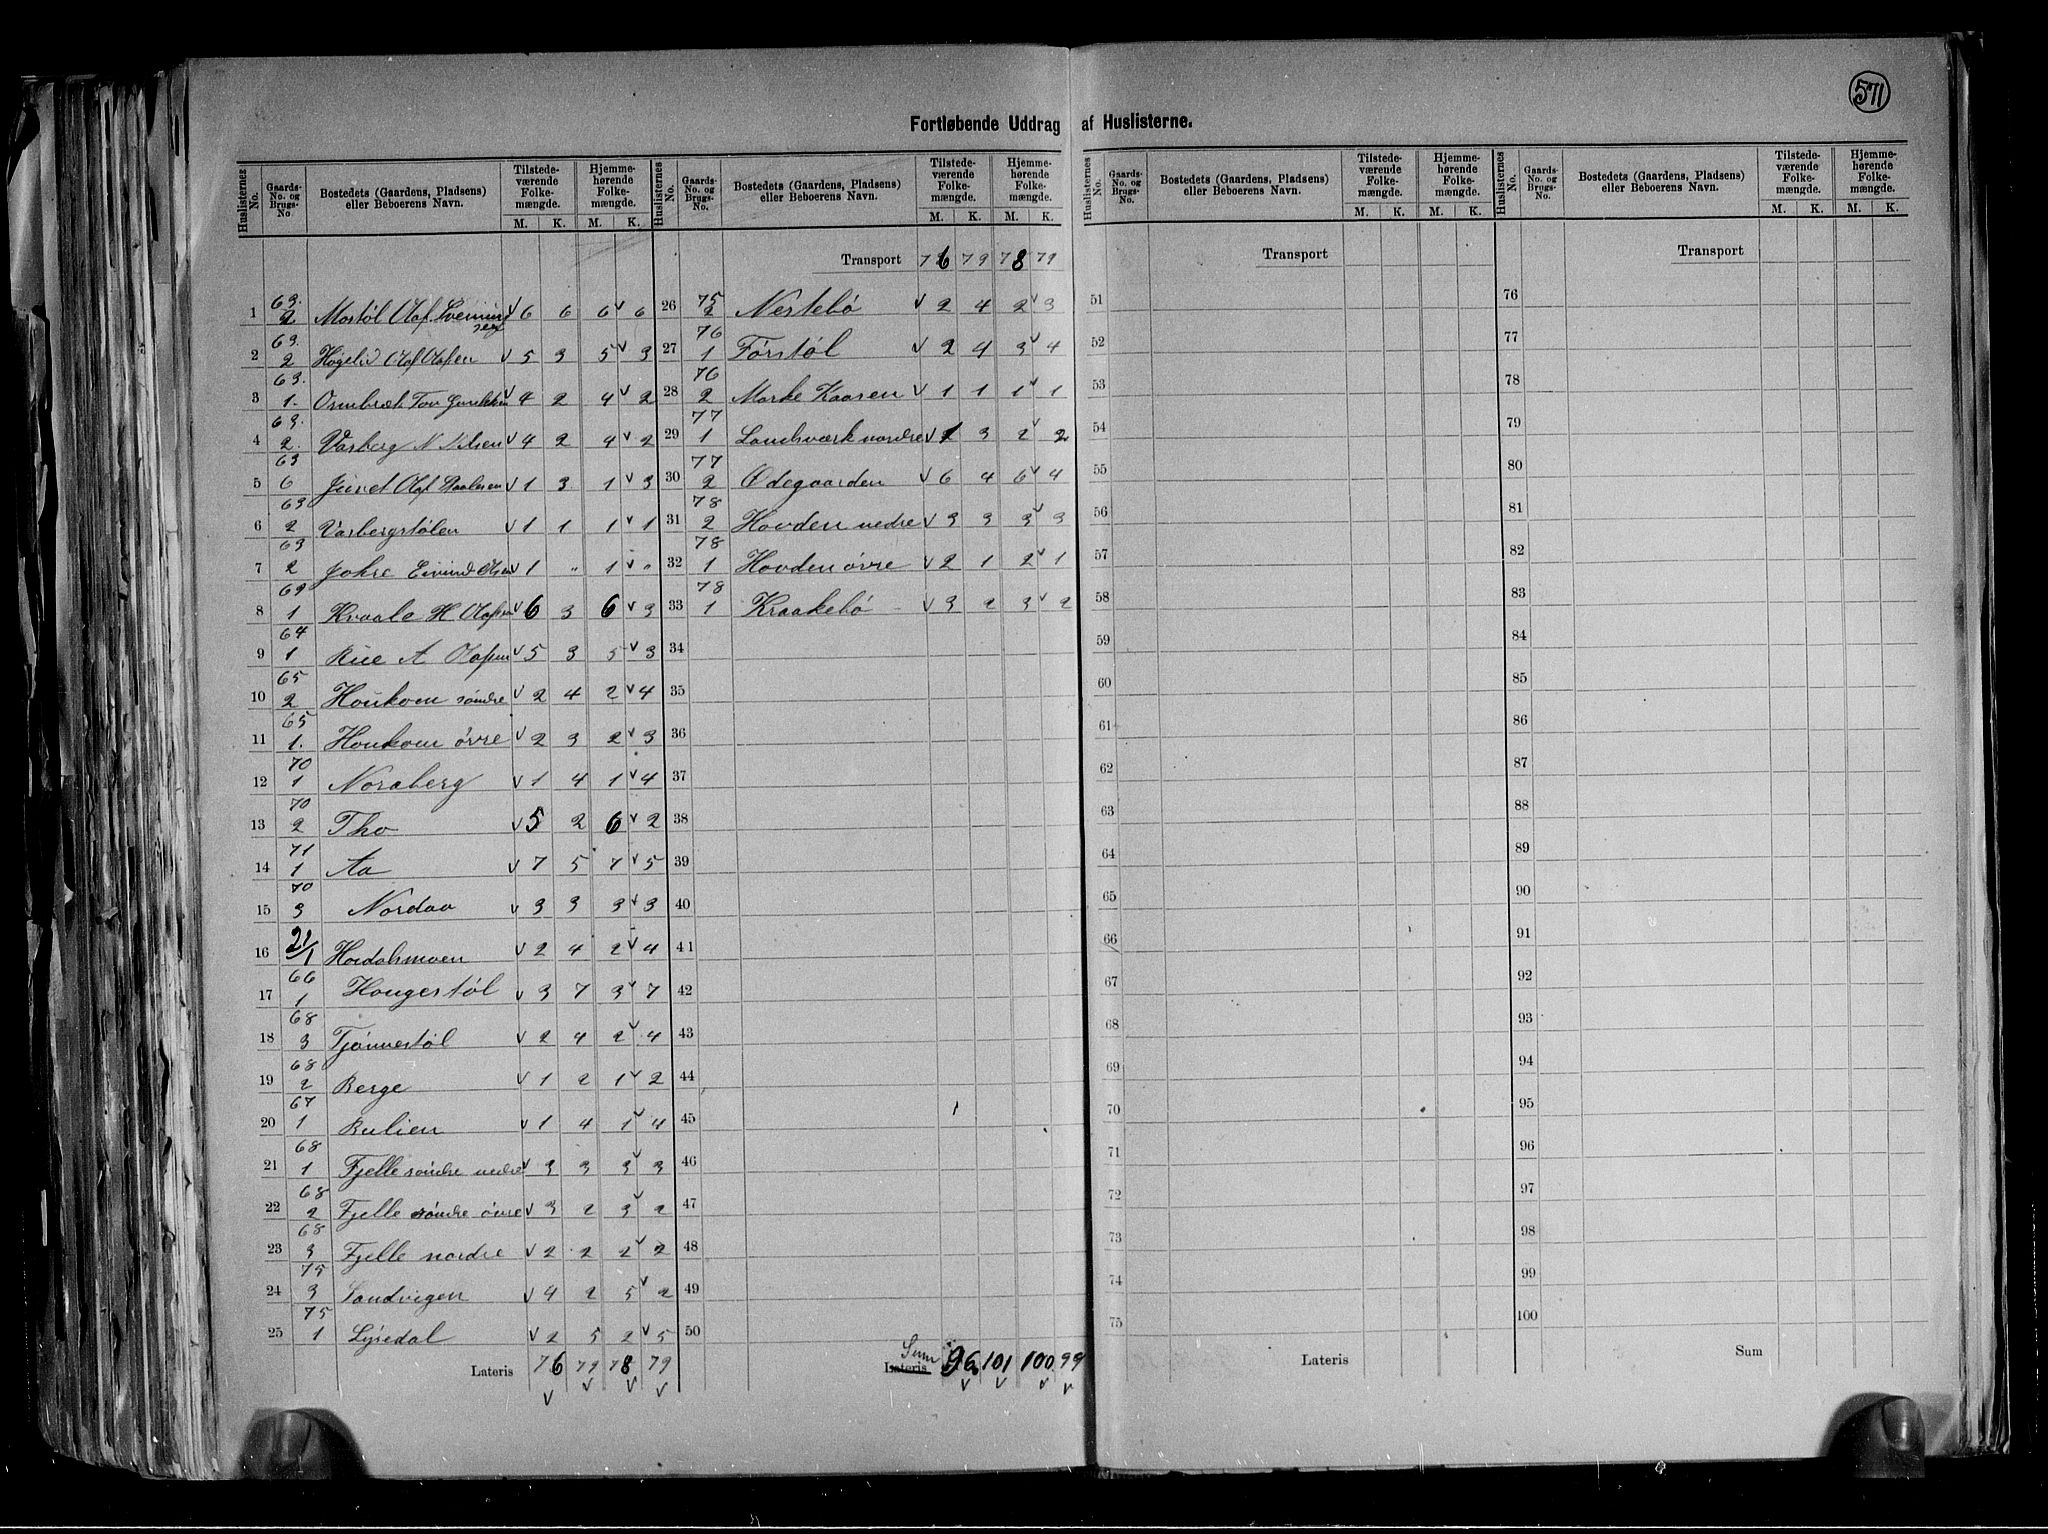 571
Fortløbende Uddrag af Huslisterne.
Huslisternes No. | Gaards-No. og Brugs-No | Bostedets (Gaardens, Pladsens) eller Beboerens Navn. | Tilstedeværende Folkemængde. M. K. | Hjemmehørende Folkemængde. M. K.
1 63. 2 Mostøl Olaf Sveinungsen v 6 6 6 v 6
2 63. 2 Høgelid Olaf Olafsen v 5 3 5 v 3
3 63. 1. Ormbræk Tov v 4 2 4 v 2
4 63. 2. Vasberg N Nilsen v 4 2 4 v 2
5 63 6 Juvet Olaf v 1 3 1 v 3
6 63 2 Vasbergstølen v 1 1 1 v 1
7 63 2 Jokre Eivind Olsen v 1 " 1 v "
8 69 1 Kvaale H Olafsen v 6 3 6 v 3
9 64 1 Rue A Olafsen v 5 3 5 v 3
10 65 2 Houkom søndre v 2 4 2 v 4
11 65 1. Houkom øvre v 2 3 2 v 3
12 70 1 Noraberg v 1 4 1 v 4
13 70 2 Tho v 5 2 6 v 2
14 71 1 Aa v 7 5 7 v 5
15 70 3 Nordaa v 3 3 3 v 3
16 21/1 Hordalsmoen v 2 4 2 v 4
17 66 1 Hougestøl v 3 7 3 v 7
18 68 3 Tjønnestøl v 2 4 2 v 4
19 68 2 Berge v 1 2 1 v 2
20 67 1 Bulien v 1 4 1 v 4
21 68 1 Fjelle søndre nedre v 3 3 3 v 3
22 68 2 Fjelle søndre øvre v 3 2 3 v 2
23 68 3 Fjelle nordre v 2 2 2 v 2
24 75 3 Sandvigen v 4 2 5 v 2
25 75 1 Lysedal v 2 5 2 v 5
Lateris 76 79 78 79
v v v v
Huslisternes No. | Gaards-No. og Brugs-No. | Bostedets (Gaardens, Pladsens) eller Beboerens Navn. | Tilstedeværende Folkemængde. M. K. | Hjemmehørende Folkemængde. M. K.
Transport 76 79 78 79
26 75 2 Nestebø v 2 4 2 v 3
27 76 1 Førstøl v 2 4 3 v 4
28 76 2 Morke Kaasen v 1 1 1 v 1
29 77 1 Landsværk nordre v 1 3 2 v 2
30 77 2 Ødegaarden v 6 4 6 v 4
31 78 2 Hovden nedre v 3 3 3 v 3
32 78 1 Hovden øvre v 2 1 2 v 1
33 78 1 Kraakebø v 3 2 3 v 2
34
35
36
37
38
39
40
41
42
43
44
45
46
47
48
49
50
Sum
Lateris 96 101 100 99
v v v v
Huslisternes No. | Gaards-No. og Brugs-No. | Bostedets (Gaardens, Pladsens) eller Beboerens Navn. | Tilstedeværende Folkemængde. M. K. | Hjemmehørende Folkemængde. M. K.
Transport
51
52
53
54
55
56
57
58
59
60
61
62
63
64
65
66
67
68
69
70
71
72
73
74
75
Lateris
Huslisternes No. | Gaards-No. og Brugs-No. | Bostedets (Gaardens, Pladsens) eller Beboerens Navn. | Tilstedeværende Folkemængde. M. K. | Hjemmehørende Folkemængde. M. K.
Transport
76
77
78
79
80
81
82
83
84
85
86
87
88
89
90
91
92
93
94
95
96
97
98
99
100
Sum